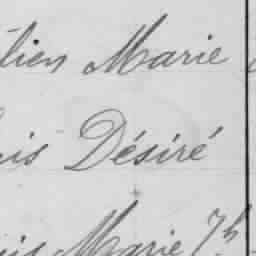 lien Marie
is Désiré
is Marie Th